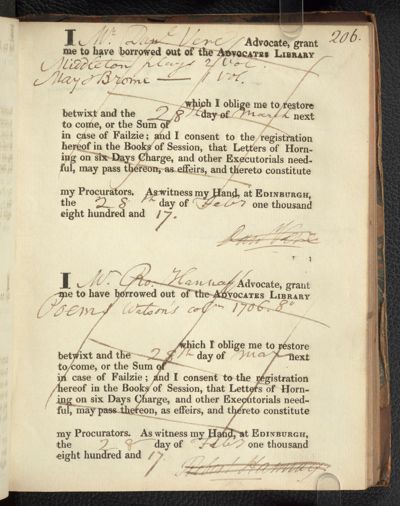 206.
I Mr. Danl. Vere Advocate, grant
me to have borrowed out of the ADVOCATES LIBRARY
Middleton plays 2 vol.
May & Brome — 1 vol.
which I oblige me to restore
betwixt and the 28th day of March next
to come, or the Sum of
in case of Failzie; and I consent to the registration
hereof in the Books of Session, that Letters of Horn-
ing on six Days Charge, and other Executorials need-
ful, may pass thereon, as effeirs, and thereto constitute
my Procurators. As witness my Hand, at EDINBURGH,
the 28th day of Febr one thousand
eight hundred and 17.
Dan Vere
I Mr. Ro. Hannay Advocate, grant
me to have borrowed out of the ADVOCATES LIBRARY
Poems Watson's coln 1706. 8o
which I oblige me to restore
betwixt and the 28th day of Mar next
to come, or the Sum of
in case of Failzie; and I consent to the registration
hereof in the Books of Session, that Letters of Horn-
ing on six Days Charge, and other Executorials need-
ful, may pass thereon, as effeirs, and thereto constitute
my Procurators. As witness my Hand, at EDINBURGH,
the 28 day of Febr one thousand
eight hundred and 17
Robert Hannay